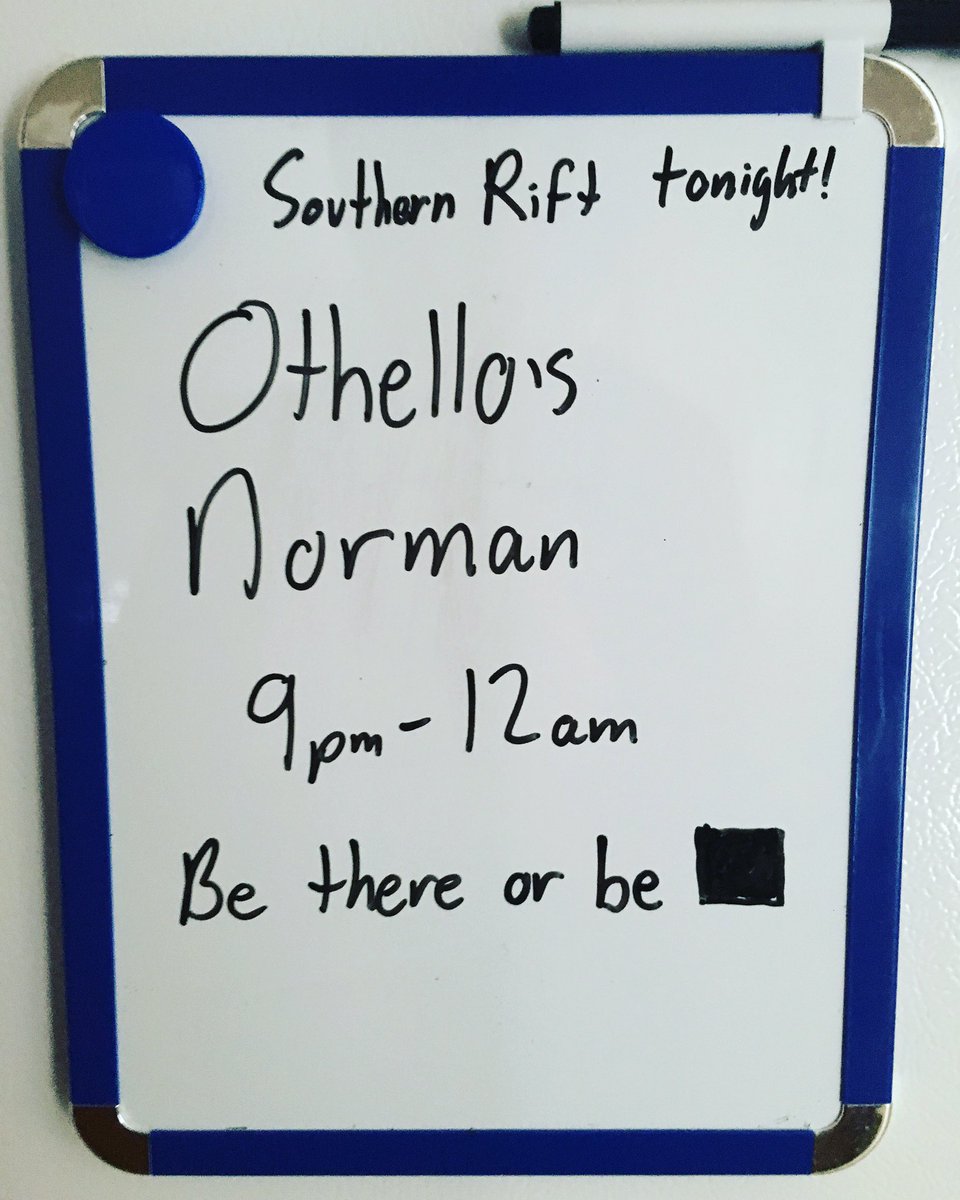 Southern Rift tonight!
Othello's
Norman
9pm - 12am
Be there or be ■